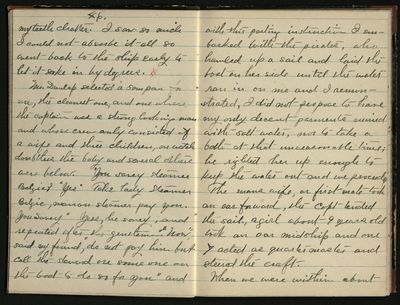 my teeth chatter. I saw so much
I could not absorb it all so
went back to the ship early to
let it soak in by degrees.
Mr. Dunlap selected a sampan for
us, the cleanest one, and one where
the captain was a strong looking man
and whose crew only consisted of
a wife and three children, no
the baby and several others
were below. "You savey steamer
Belgic?" "Yes" "Take lady steamer
Belgic, man on steamer pay you.
You Savey" "Yes, he savey, and"
repeated after the gentleman. "Now"
said my friend, do not pay him but
call the steward or some one on
the boat to do so for you" and
with this parting instruction I em-
barked with the pirates, who
hauled up a sail and laid the
boat on her side until the water
ran in on me and I remon-
strated, I did not propose to have
my only decent garments ruined
with salt water, nor to take a
bath at that unseasonable time;
he righted her up enough to
keep the water out and we proceeded.
The mans wife, or first mate took
an oar forward, the Capt. tended
the sail, a girl about 9 years old
took an oar midship and one
7 acted as quartermaster and
steered the craft.
When we were within about